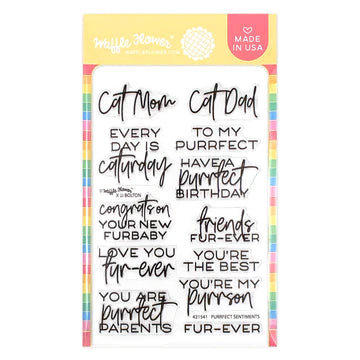 Waffle Flower
WAFFLEFLOWER.COM
MADE IN USA
Cat Mom
Cat Dad
EVERY
DAY IS
caturday
TO MY
PURRFECT
HAVE A
purrfect
BIRTHDAY
Waffle Flower
X JJ BOLTON
congrats on
YOUR NEW
FURBABY
friends
FUR-EVER
LOVE YOU
fur-ever
YOU'RE
THE BEST
YOU ARE
purrfect
PARENTS
YOU'RE MY
purrson
421541 PURRFECT SENTIMENTS
FUR-EVER